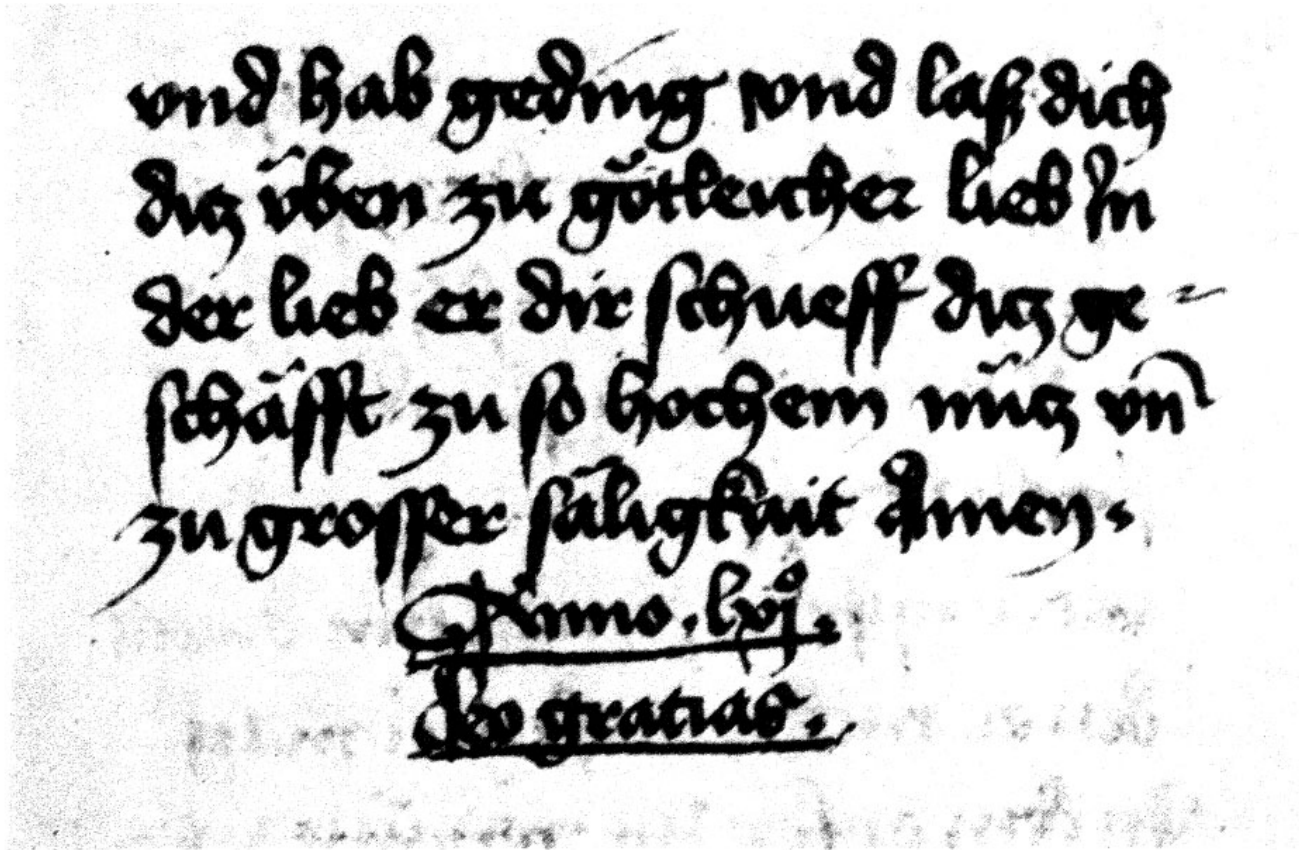 vnd hab geding vond laß dich
ditz v̈ben zu götleicher lieb In
der lieb er dir schueff ditz ge-
schäfft zu so hochem nütz vn̄
zu grosser säligkait Amen.
Anno . lxj°.
deo gratias.